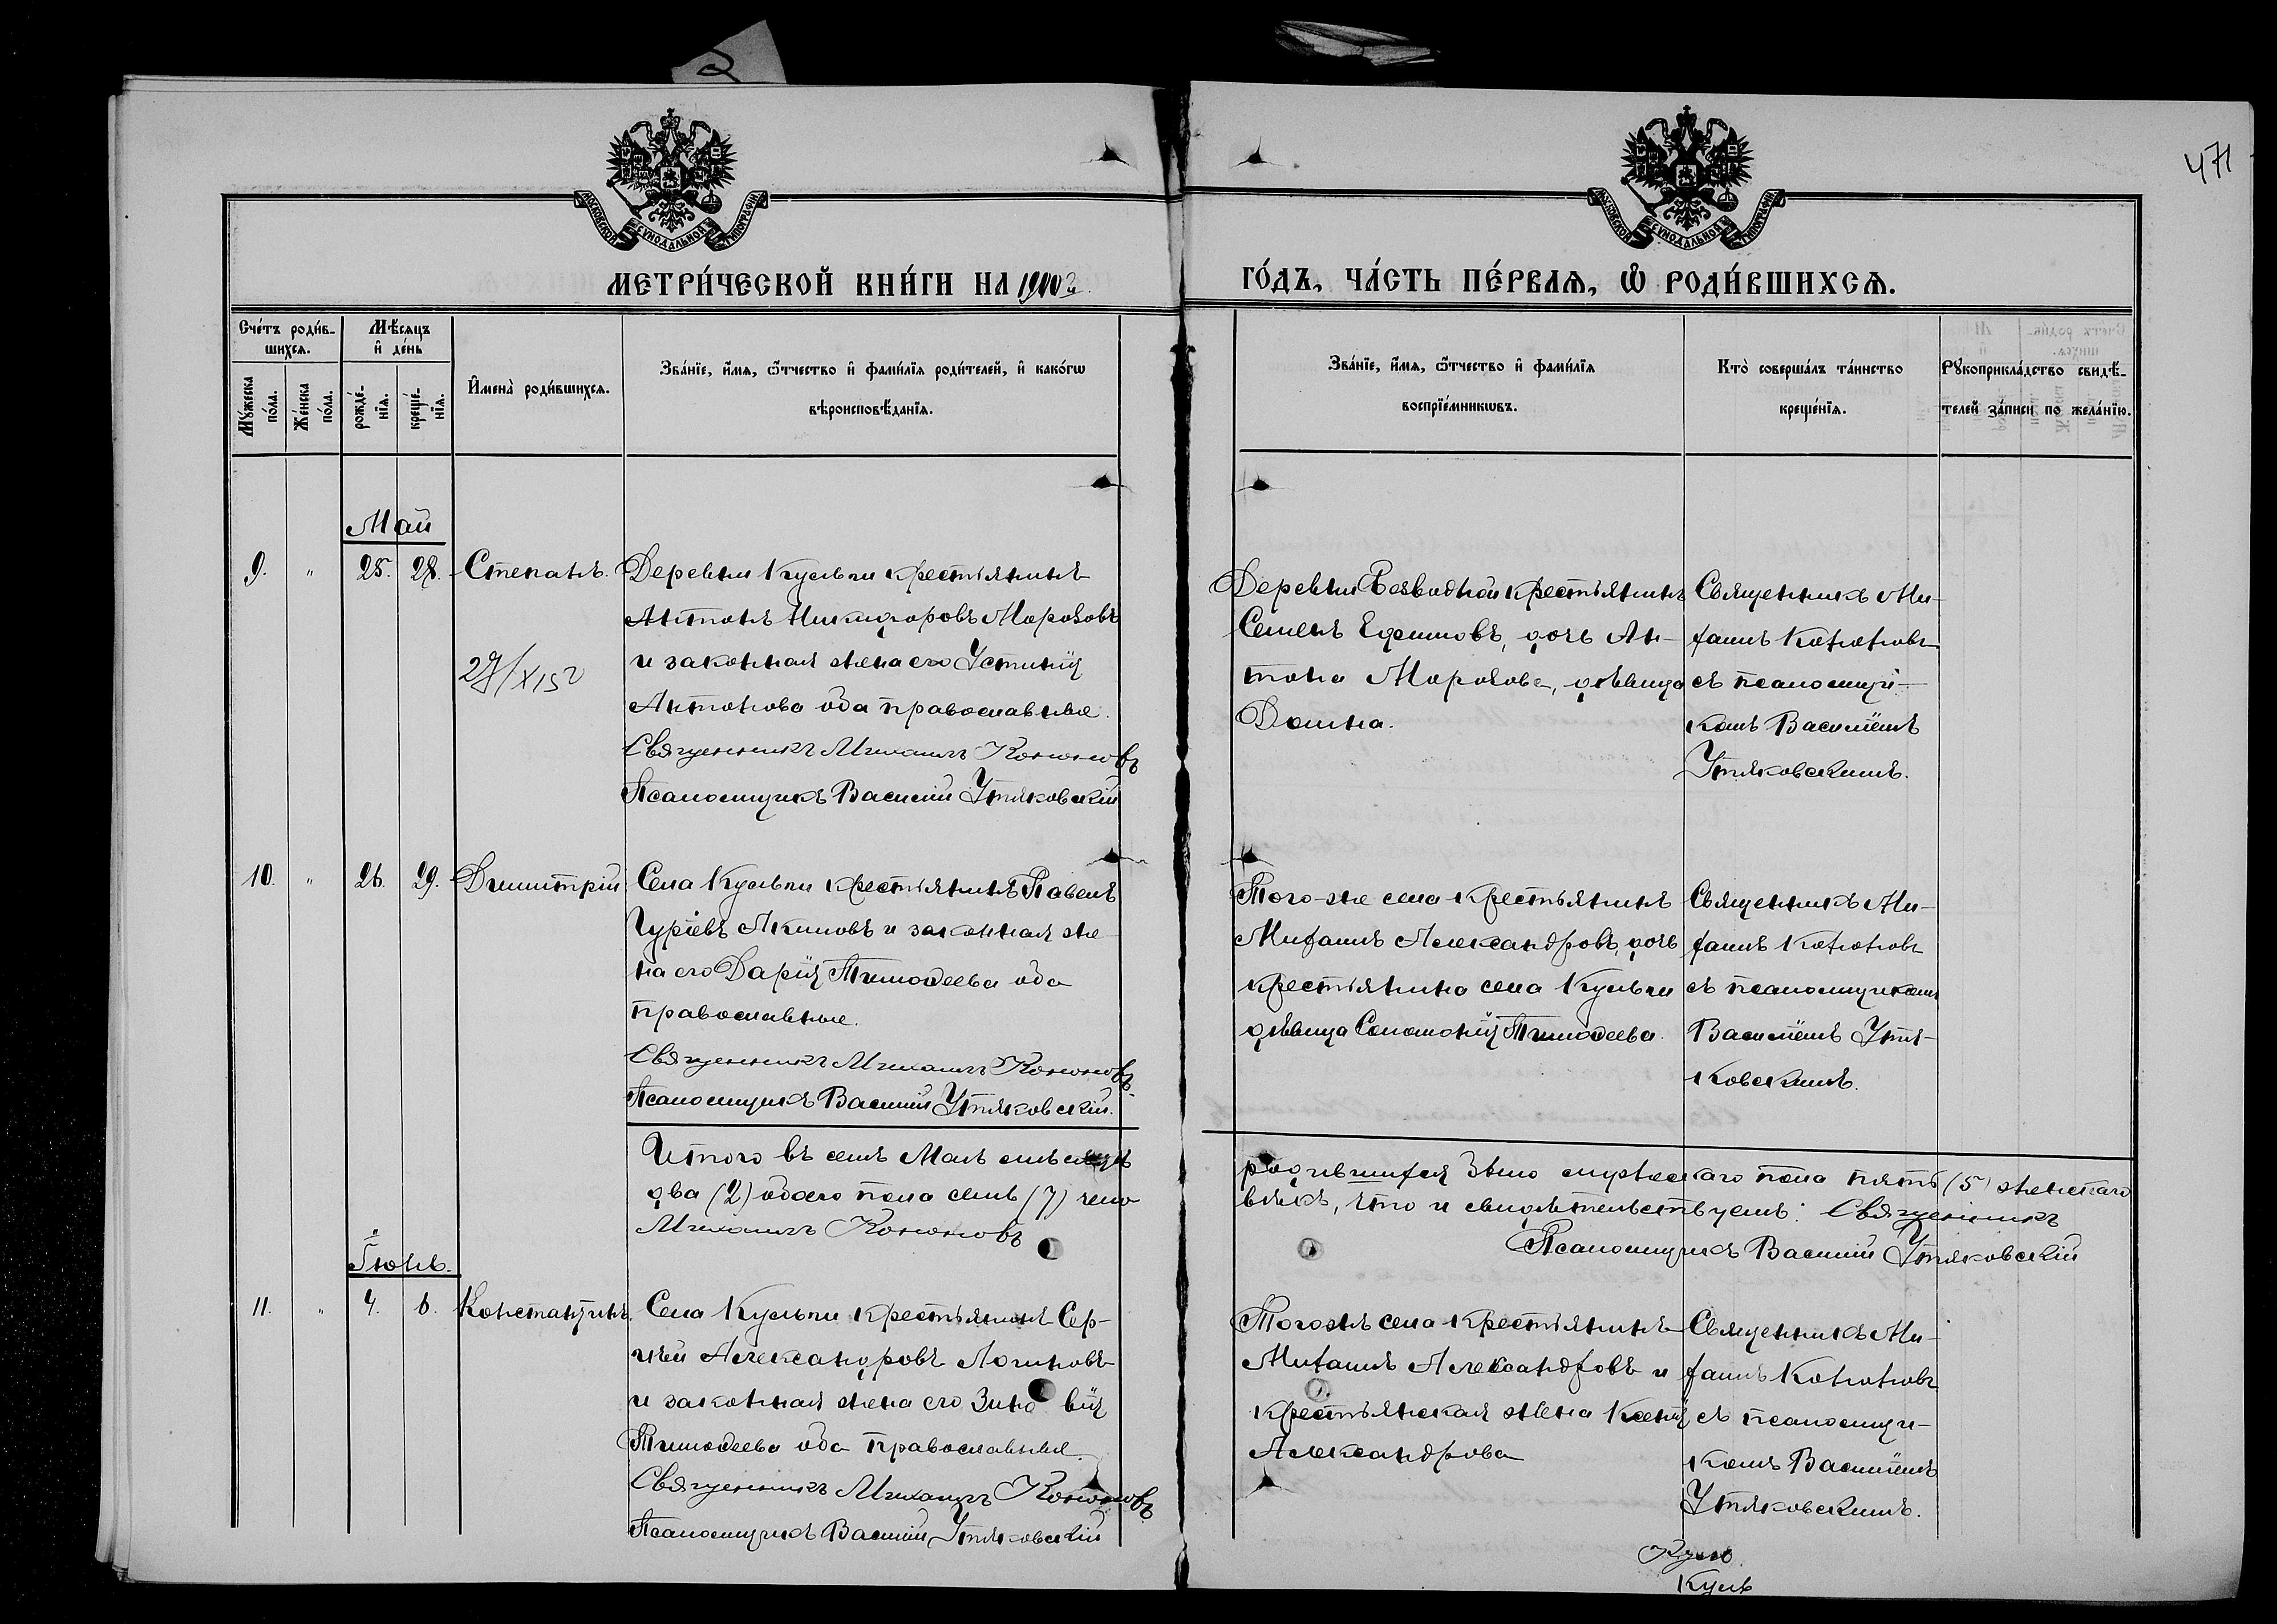 471
МОСКОВСКОЙ СѴНОДАЛЬНОЙ ТИПОГРАФІИ
МОСКОВСКОЙ СѴНОДАЛЬНОЙ ТИПОГРАФІИ
МЕТРИ́ЧЕСКОЙ КНИ́ГИ НА 1910 г.
ГО́ДЪ, ЧА́СТЬ ПЕ́РВАѦ, Ѡ҆ РОДИ́ВШИХСѦ.
Сче́тъ роди́в-
шихсѧ.
Мѣ́сяцъ
и҆ де́нь
Мꙋ́жеска
по́ла.
Же́нска
по́ла.
рожде́-
нїѧ.
креще́-
нїѧ.
И҆мена̀ роди́вшихсѧ.
Зва́нїе, и҆́мѧ, ѻ҆́тчество и҆ фами́лїѧ роди́телей, и҆ како́гѡ
вѣроисповѣ́данїѧ.
Зва́нїе, и҆́мѧ, ѻ҆́тчество и҆ фами́лїѧ
воспрїе́мникѡвъ.
Кто̀ соверша́лъ та́инство
креще́нїѧ.
Рꙋкоприкла́дство свидѣ́-
телей за́писи по жела́нїю.
Май
9. " 25. 28. Степанъ.
Деревни Кульпи крестьянинъ
Антонъ Никифоровъ Морозовъ
и законная жена его Устинія
Антонова оба православные.
Священникъ Михаилъ Кононовъ
Псаломщикъ Василій Утяковскій
Деревни Безводной крестьянинъ
Семенъ Ефимовъ, дочь Ан-
тона Морозова, дѣвица
Домна.
Священникъ Ми-
хаилъ Кононовъ
съ псаломщи-
комъ Василіемъ
Утяковскимъ.
10. " 26. 29. Димитрій
Села Кульпи крестьянинъ Павелъ
Гуріевъ Акимовъ и законная же-
на его Дарія Тимоѳеева оба
православные.
Священникъ Михаилъ Кононовъ.
Псаломщикъ Василій Утяковскій.
Того-же села крестьянинъ
Михаилъ Александровъ, дочь
крестьянина села Кульпи
дѣвица Соломонія Тимоѳеева.
Священникъ Ми-
хаилъ Кононовъ
съ псаломщикомъ
Василіемъ Утя-
ковскимъ.
Итого въ семъ Маѣ мѣсяцѣ
родившихся было мужескаго пола пять (5) женскаго
два (2) обоего пола семь (7) чело
вѣкъ, что и свидѣтельствуемъ: Священникъ
Михаилъ Кононовъ
Псаломщикъ Василій Утяковскій
Іюнь.
11. " 4. 6. Константинъ.
Села Кульпи крестьянинъ Сер-
гѣй Александровъ Логиновъ
и законная жена его Зиновія
Тимоѳеева оба православные.
Священникъ Михаилъ Кононовъ
Псаломщикъ Василій Утяковскій
Тогожъ села крестьянинъ
Михаилъ Александровъ и
крестьянская жена Ксенія
Александрова
Священникъ Ми-
хаилъ Кононовъ
съ псаломщи-
комъ Василіемъ
Утяковскимъ.
Куль